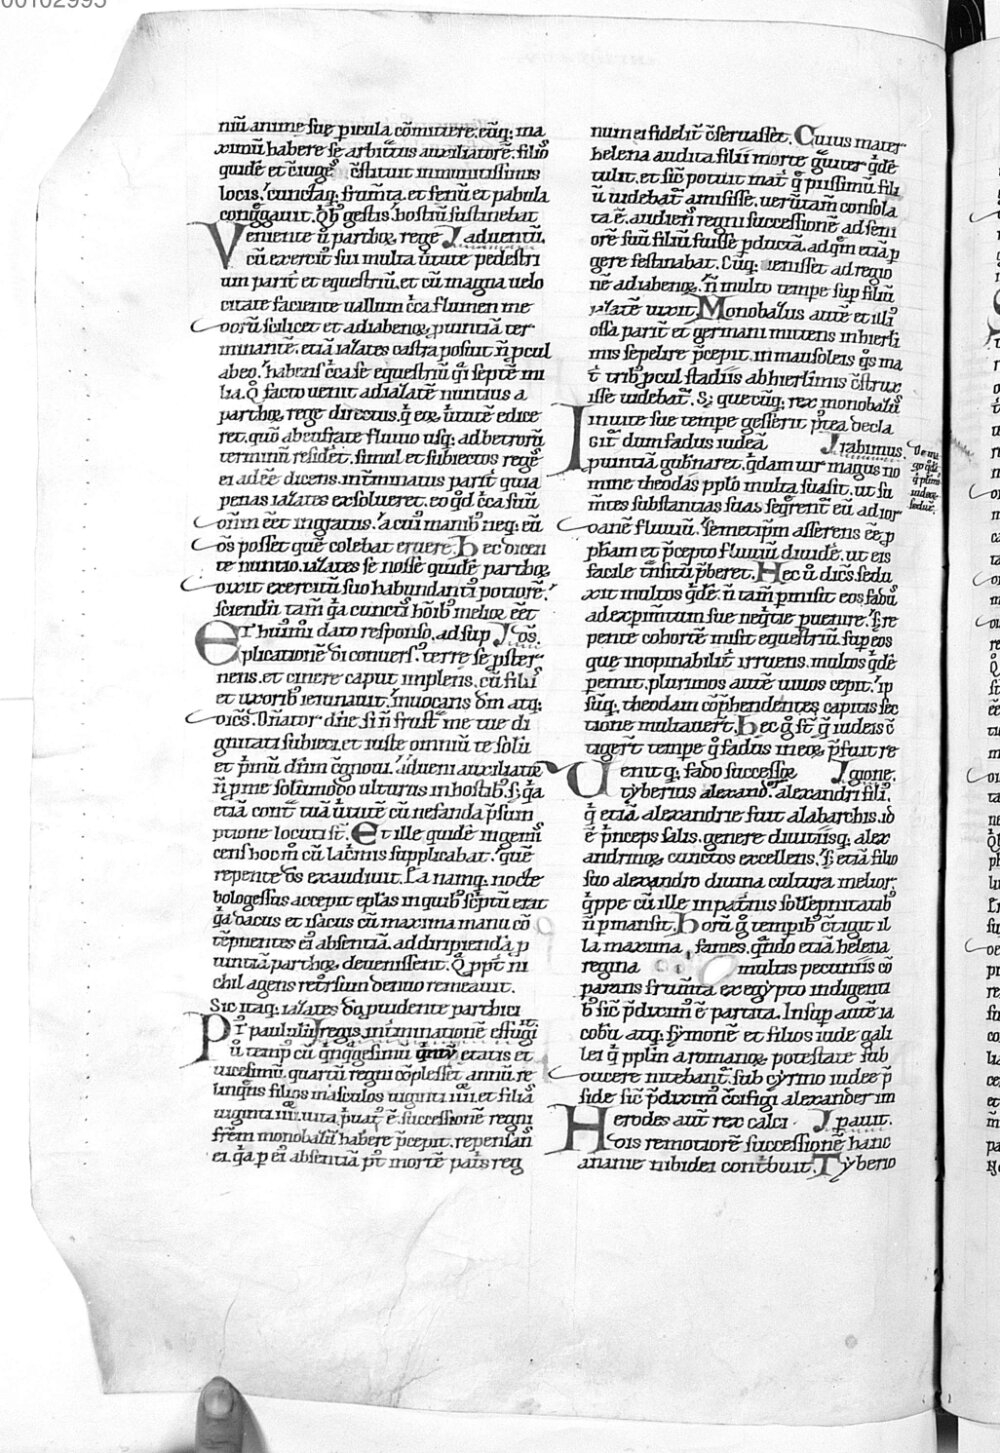 00102995
niũ anime sue picula cõmittere. cũq; ma
ximũ habere se arbit̃us auxiliatorẽ. filiõ
quidẽ et c̃iugẽ c̃stituit in munitissimis
locis. cunctaq; frum̃ta. et fenũ et pabula
cong̃gauit. Q̃b; gestis. hostiũ sustinebat
Veniente ũ parthoꝝ rege J aduentũ.
cũ exercit̃ sui multa ũtute pedestri
um parit̃ et equestriũ. et cũ magna uelo
citate faciente uallum c̃ca flumen me
doorũ scilicet et adiabenoꝝ puintiã ter
minantẽ. etiã izates castra posuit ñ pcul
abeo. habens c̃ca se equestriũ q̃i septẽ mi
lia. Q̃ facto uenit ad izatẽ nuntius a
parthoꝝ rege directus. q̃ eoꝝ ũtutẽ edice
ret. quõ ab eufrate fluuio usq; ad betrorũ
terminũ residet. simul et subiectos regẽ
ei addẽ dicens. int̃minatus parit̃ quia
penas izates exsolueret. eo q̃d c̃ca suũ
dñm eẽt ingratus. a cui manib; neq; eũ
d̃s posset quẽ colebat eruere. Hec dicen
te nuntio. izates se nosse quidẽ parthoꝝ
dixit exercitũ suo habundanti potiorẽ.
sciendũ tam̃ q̃a cunctis hõib; melior eẽt
Et hui̇mi dato responso. ad sup J dõs.
plicationẽ di conuers̃. terre se pster
nens. et cinere caput implens. cũ filiis
et uxorib; ieiunauit. inuocans dm̃ atq;
dicẽs. Dñator dñe si ñ frust̃ me tue di
gnitati subieci. et iuste omniũ te solũ
et p̃mũ dñm c̃gnoui. adueni auxiliator
ñ p me solũmodo ulturus in hostib; s; q̃a
etiã cont̃ tuã ũtutẽ cũ nefanda p̃sum
ptione locuti st̃. Et ille quidẽ ingemi
cens hoc m̃ cũ lac̃mis supplicabat. quẽ
repente d̃s exaudiuit. Ea namq; nocte
bologessus accepit ep̃las in quib; sc̃ptũ erat
q̃a dacus et isacus cũ maxima manu cõ
tẽpnentes ei absentiã. ad diripiendã p
uintiã parthoꝝ deuenissent. Q̃ ppt̃ ni
chil agens ret̃rsum denuo remeauit.
Sic itaq; izates d̃o puidente parthici
Pr paululũ J regis int̃minationẽ effugit
ũ temp cũ q̃nq̃gesimũ q̃ntũ etatis et
uicesimũ quartũ regni cõplesset annũ. re
linq̃ns filios masculos uiginti iiii. et filias
uiginti iiii. uita p̃uat̃ ẽ. successionẽ regni
fr̃em monobazũ habere p̃cepit. repensañs
ei. q̃a p ei absentiã p̃t mortẽ pat̃s reg
num ei fidelit̃ c̃seruasset. Cuius mater
helena audita filii morte g̃uiter q̃dẽ
tulit. et sic̃ potuit mat̃ q̃ piissimũ fili
ũ uidebat̃ amisisse. uerũtam̃ consola
ta ẽ. audiens regni successionẽ ad seni
orẽ suũ filiũ fuisse pductã. ad q̃m etiã p
gere festinabat. Cũq; uenisset ad regio
nẽ adiabenoꝝ. ñ multo tempe sup filiũ
izatẽ uixit. Monobazus autẽ et illi
ossa parit̃ et germani mittens in hierli
mis sepelire p̃cepit. in mausoleis q̃s ma
t̃ trib; pcul stadiis ab hierlimis c̃strux
isse uidebat̃. S; que cũq; rex monobazũ
In uite sue tempe gesserit p̃tea decla
Git̃ dum fadus iudeã J rabimus.
puintiã gub̃naret. q̃dam uir magus no
mine theodas pplõ multa suasit. ut su
m̃tes substantias suas seq̃rent̃ eũ ad ior
danẽ fluuiũ. semetip̃m asserens eẽ p
pham et p̃cepto fluuiũ diuidẽ. ut eis
facile t̃nsitũ p̃beret. Hec ũ dic̃s sedu
xit multos q̃dẽ. ñ tam̃ pmisit eos fadũ
ad exp̃mtum sue neq̃tie puenire. S; re
pente cohortẽ misit equestriũ sup eos
que inopinabilit̃ irruens. multos q̃dẽ
pemit. plurimos autẽ uiuos cepit. ip
suq̃. theodam cõp̃hendentes capitis sec
tione multauer̃t. Hec g̃ st̃. q̃ iudeis c̃
tiger̃t tempe q̃ fadus in eoꝝ p̃fuit re
Uenit q; fado successor J gione.
tyberius alexand̃. alexandri fili.
q̃ etiã alexandrie fuit alabarchis. id
ẽ p̃nceps salis. genere diuitiisq; alex
andrinoꝝ cunctos excellens. S; etiã filio
suo alexandro diuina cultura melior.
q̃ppe cũ ille in pat̃nis sollẽpnitatib;
ñ pmansit. Horũ g̃ tempib; c̃tigit il
la maxima fames. q̃ndo etiã helena
regina multis pecuniis cõ
parans frum̃ta ex egypto indigenti
b; sic̃ p̃dictum ẽ partita. Insup autẽ ia
cobũ atq; symonẽ et filios iude gali
lei q̃ pplm̃ a romanoꝝ potestate sub
ducere nitebant̃. sub cyrino iudee p̃
side sic̃ p̃dixim̃. c̃rifigi alexander im
Herodes aut̃ rex calci J pauit.
dis remotiorẽ successionẽ hanc
ananie nibidei cont̃buit. Tyberio
De ma
go q̃dã
q̃ plurimũ
iudeos
seduxit.